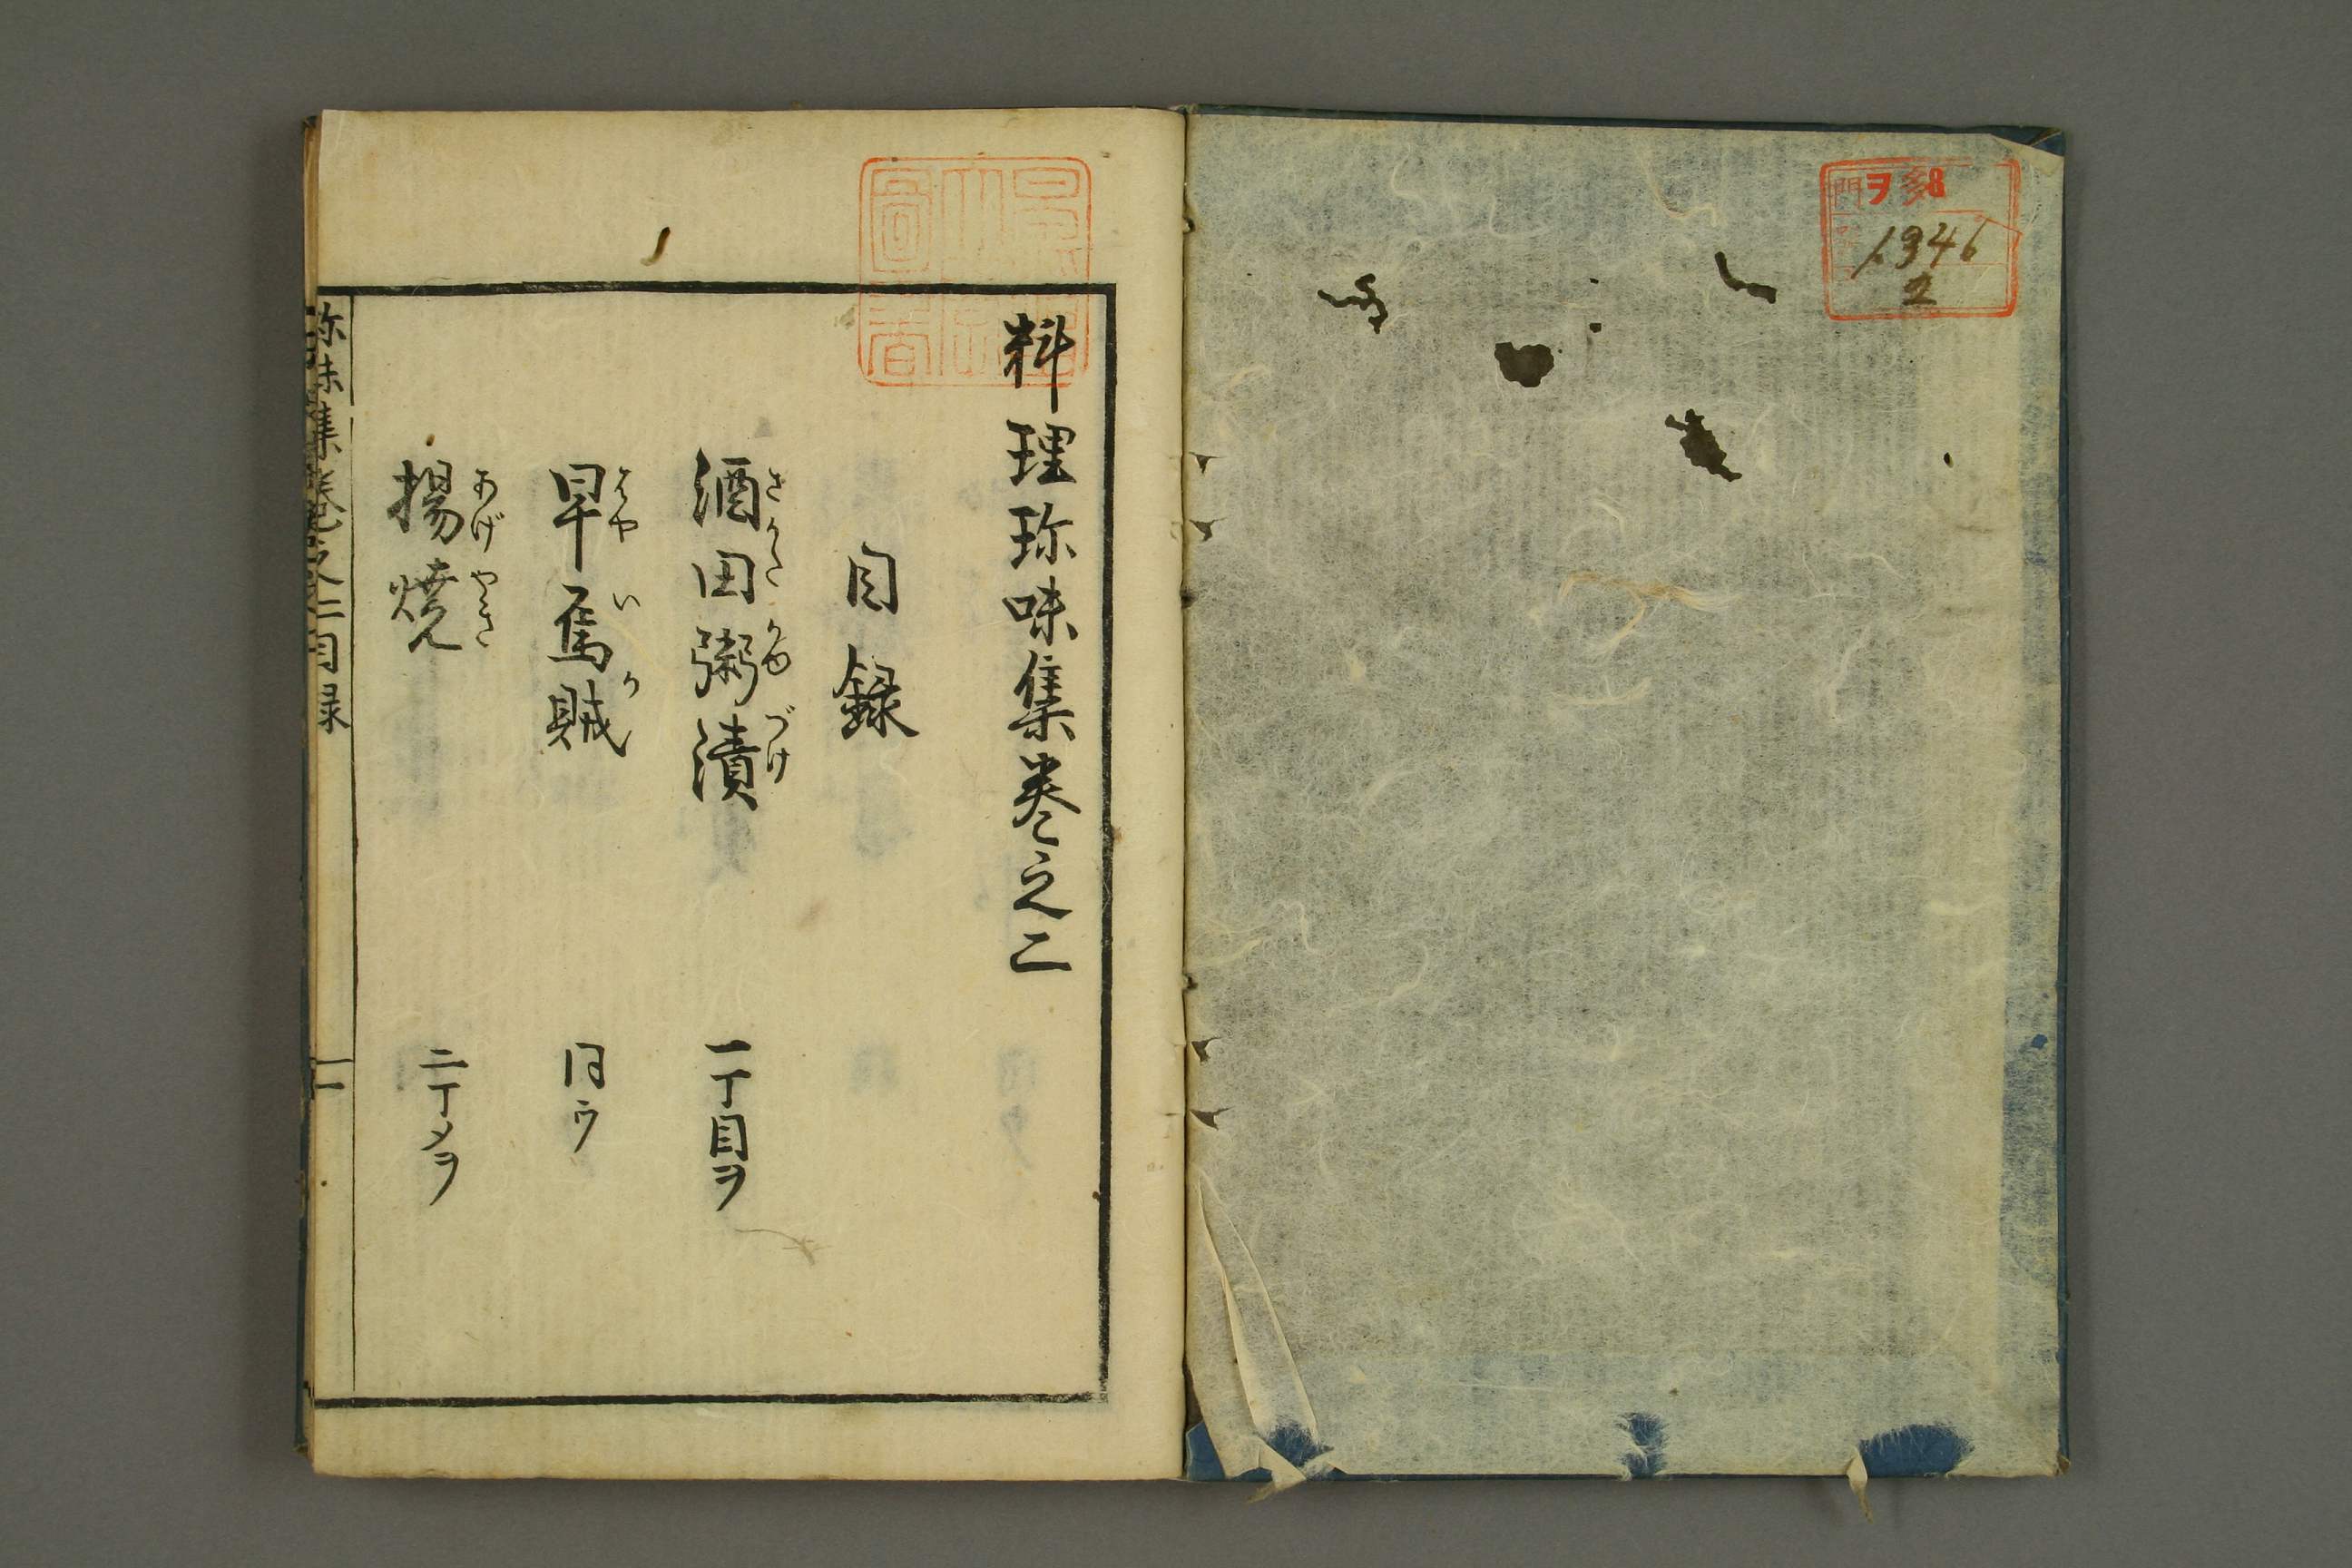 ヲ
8
1946
2
料理珎味集巻之二
目録
酒田粥漬 一丁目ヲ
さかた かゆ づけ
早烏賊 同ウ
はや いか
揚焼 二丁メヲ
あげ やき
珎味集巻之二目録
一